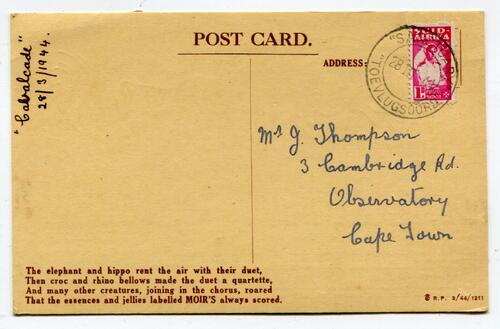 "Cavalcade"
28/3/1944.
POST CARD.
ADDRESS
SUID
AFRIKA
28
"TOEVLUGSOORD
Mr J. Thompson
3 Cambridge Rd.
Observatory
Cape Town
The elephant and hippo rent the air with their duet,
Then croc and rhino bellows made the duet a quartette,
And many other creatures, joining in the chorus, roared
That the essences and jellies labelled MOIR'S always scored.
R.P. 3/44/1211